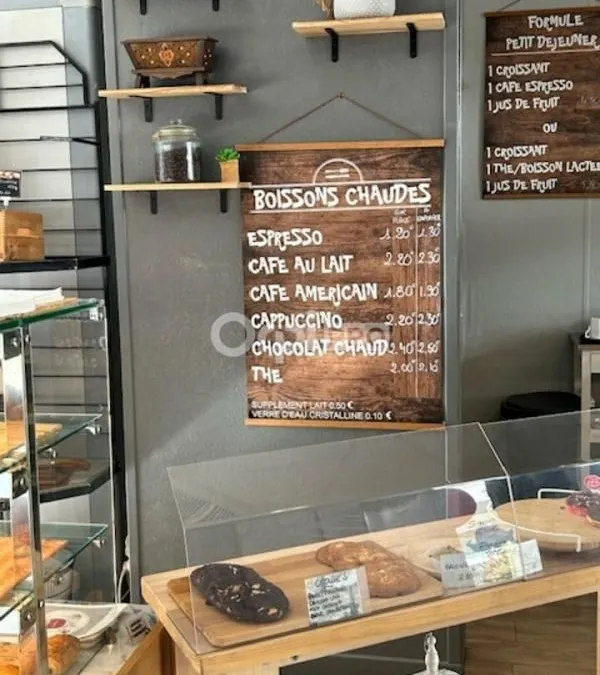 FORMULE
PETIT DEJEUNER
1 CROISSANT
1 CAFE ESPRESSO
1 JUS DE FRUIT
OU
1 CROISSANT
1 THE/BOISSON LACTEE
1 JUS DE FRUIT
BOISSONS CHAUDES
SUR PLACE A EMPORTER
ESPRESSO 1.20€ 1.30€
CAFE AU LAIT 2.20€ 2.30€
CAFE AMERICAIN 1.80€ 1.90€
CAPPUCCINO 2.20€ 2.30€
CHOCOLAT CHAUD 2.40€ 2.50€
THE 2.00€ 2.10€
SUPPLEMENT LAIT 0.50 €
VERRE D'EAU CRISTALLINE 0.10 €
COOKIES